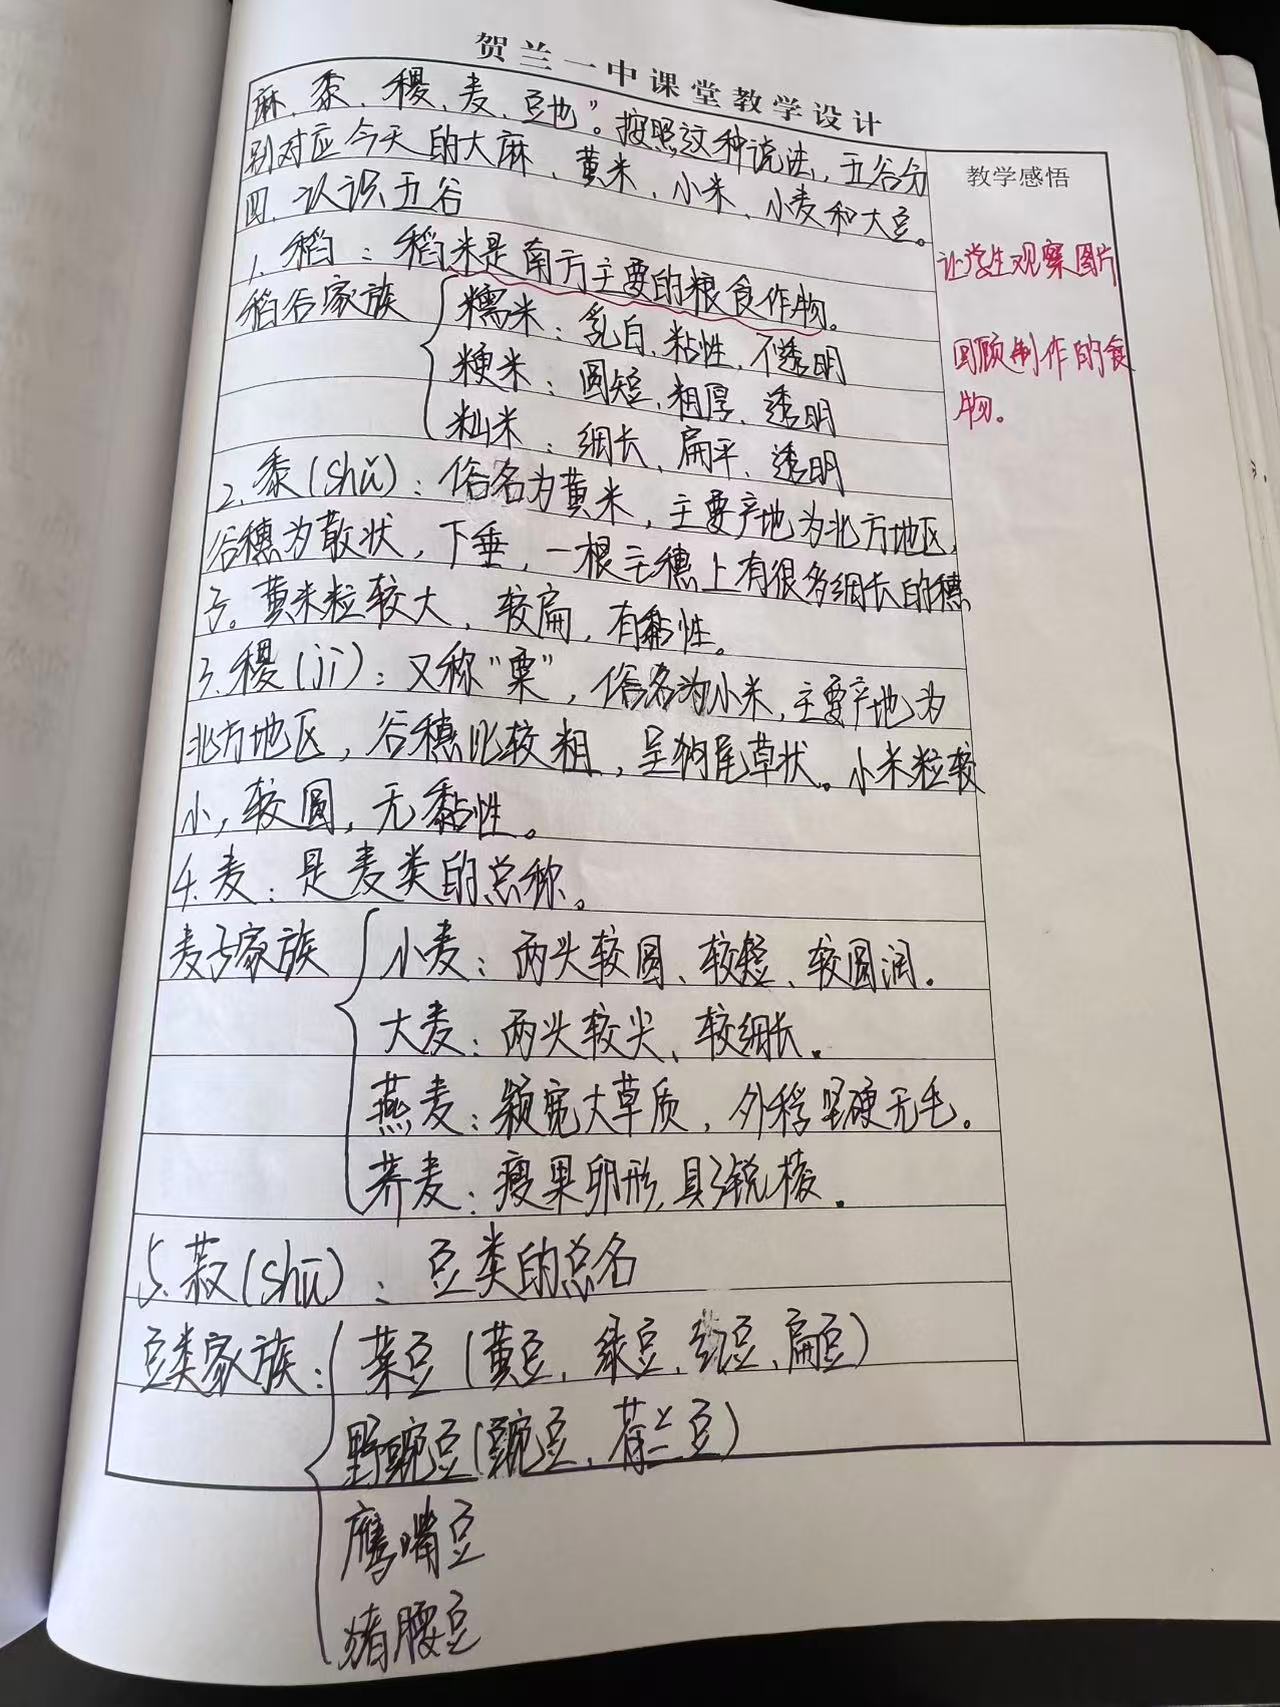 贺兰一中课堂教学设计
麻、黍、稷、麦、豆也"。按照这种说法,五谷分
别对应今天的大麻、黄米、小米、小麦和大豆。
四、认识五谷
1. 稻:稻米是南方主要的粮食作物。
稻谷家族
糯米:乳白、粘性、不透明
粳米:圆短、粗厚、透明
籼米:细长、扁平、透明
2. 黍(shǔ):俗名为黄米,主要产地为北方地区,
谷穗为散状,下垂,一根主穗上有很多细长的穗
子。黄米粒较大,较扁,有黏性。
3. 稷(jì):又称"粟",俗名为小米,主要产地为
北方地区,谷穗比较粗,呈狗尾草状。小米粒较
小,较圆,无黏性。
4. 麦:是麦类的总称。
麦子家族
小麦:两头较圆、较整、较圆润。
大麦:两头较尖、较细长。
燕麦:颖宽大草质,外稃坚硬无毛。
荞麦:瘦果卵形,具3锐棱。
5. 菽(shū):豆类的总名
豆类家族:
菜豆(黄豆,绿豆,红豆、扁豆)
野豌豆(豌豆,豆)
鹰嘴豆
猪腰豆
教学感悟
让学生观察图片
回顾制作的食
物。